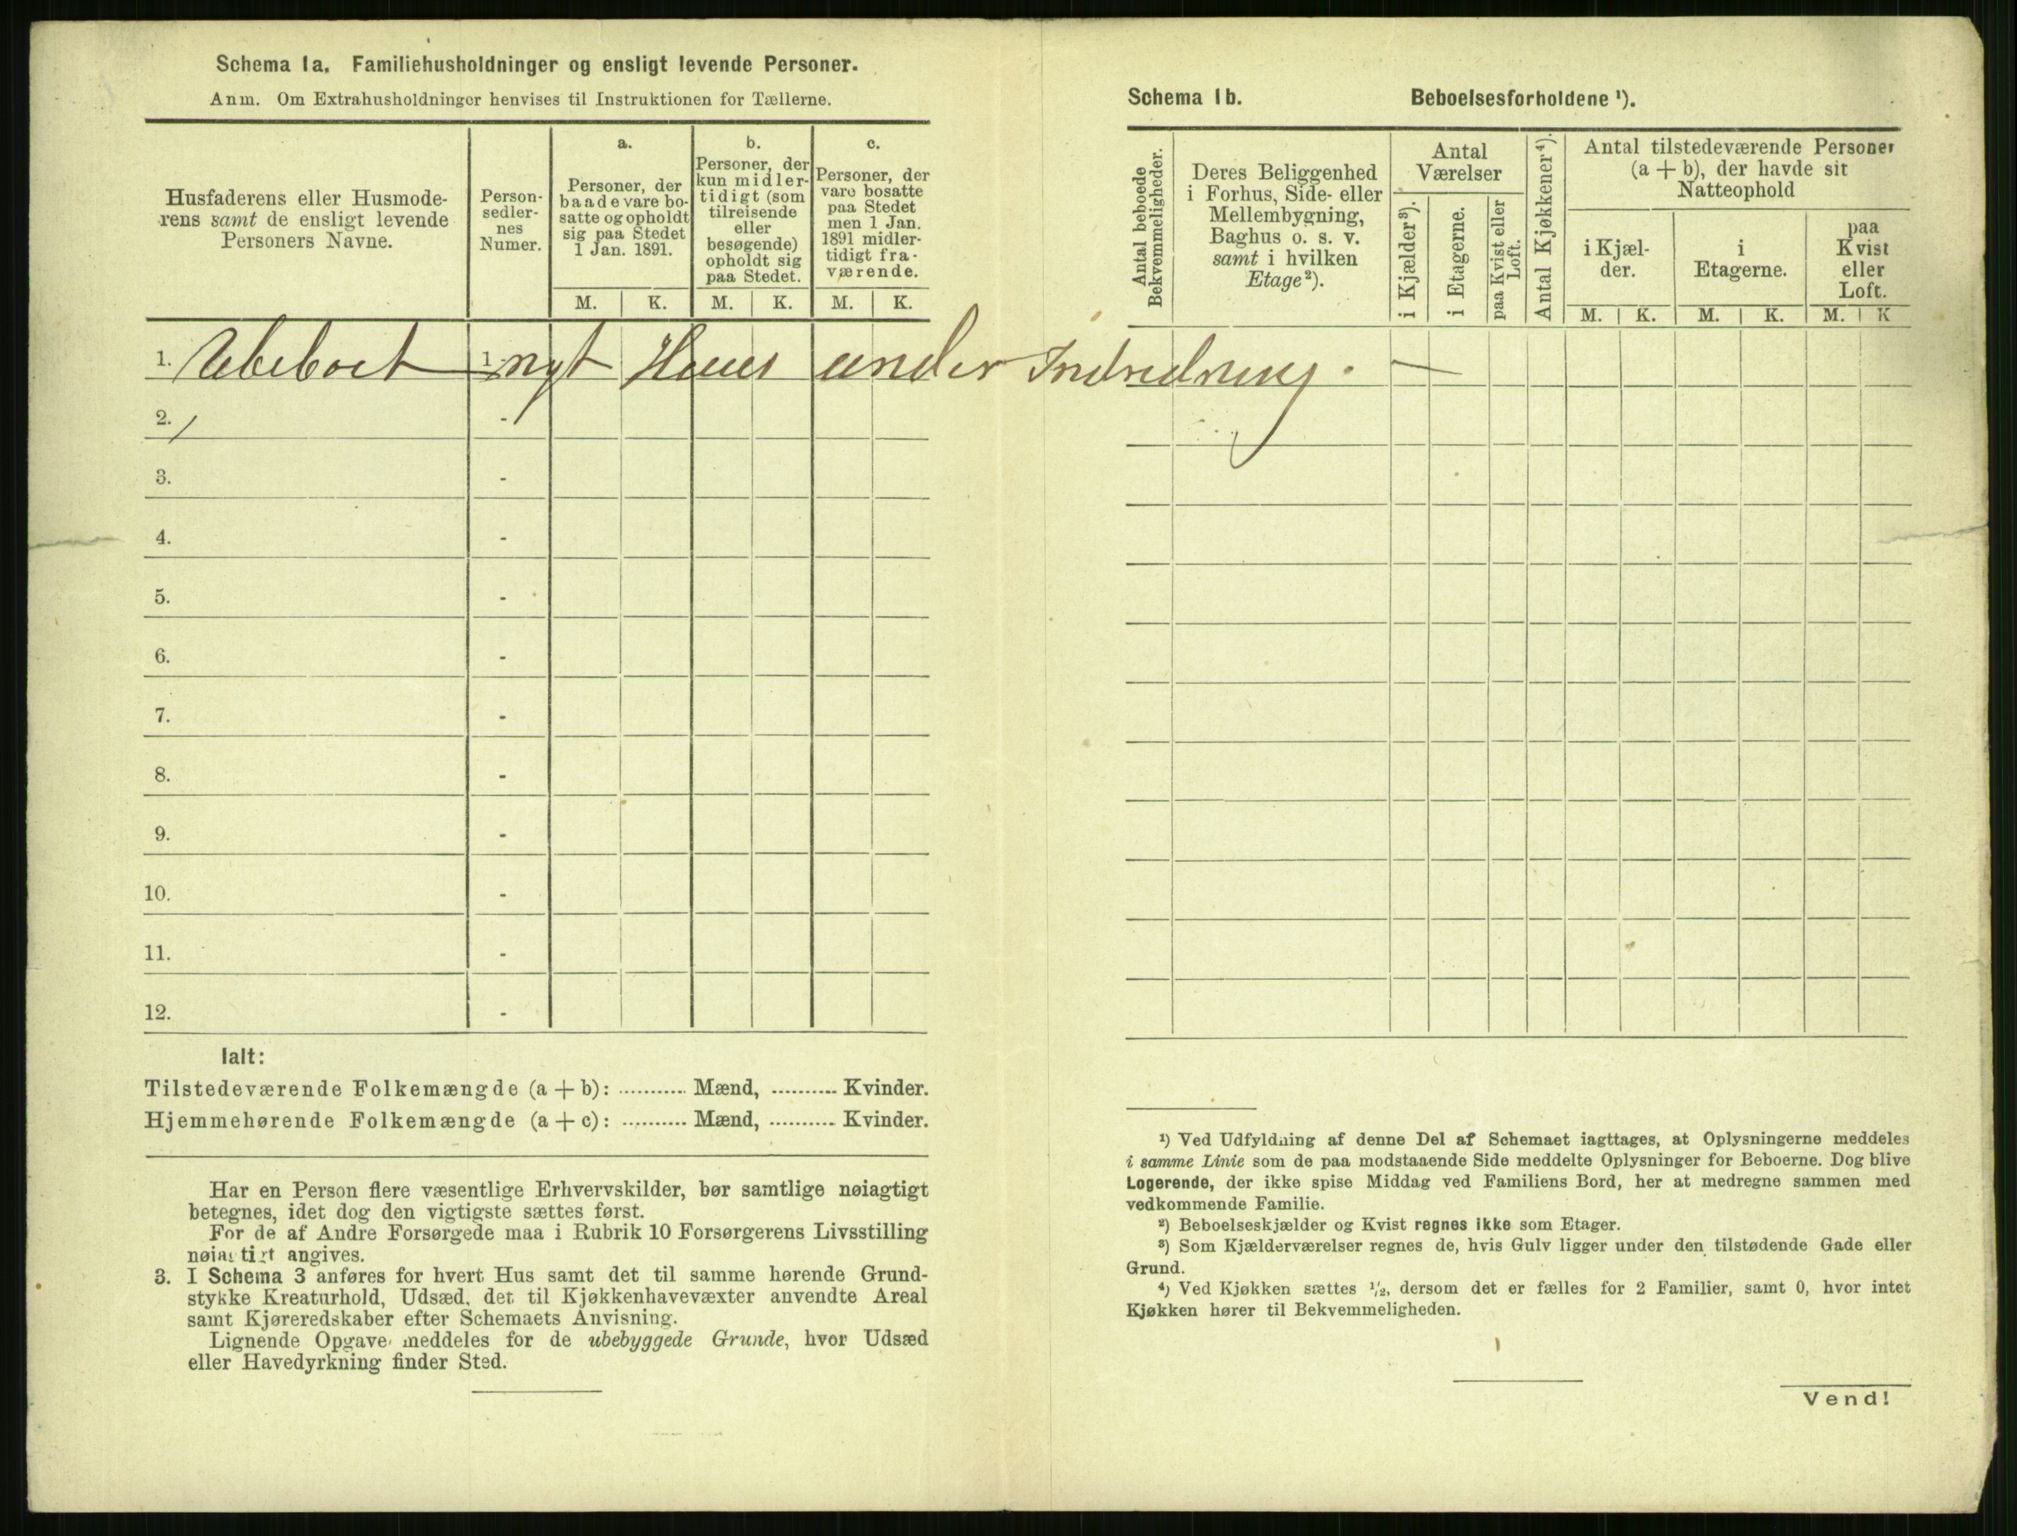 Schema 1a. Familiehusholdninger og ensligt levende Personer.
Anm. Om Extrahusholdninger henvises til Instruktionen for Tællerne.
Husfaderens eller Husmode-
rens samt de ensligt levende
Personers Navne.
Person-
sedler-
nes
Numer.
a.
Personer, der
baade vare bo-
satte og opholdt
sig paa Stedet
1 Jan. 1891.
b.
Personer, der
kun midler-
tidigt (som
tilreisende
eller
besøgende)
opholdt sig
paa Stedet.
c.
Personer, der
vare bosatte
paa Stedet
men 1 Jan.
1891 midler-
tidigt fra-
værende.
M. K. M. K. M. K.
1. Ubeboet 1 nyt Huus under Indredning. —
2. -
3. -
4. -
5. -
6. -
7. -
8. -
9. -
10. -
11. -
12. -
Ialt:
Tilstedeværende Folkemængde (a + b): ........... Mænd, ........... Kvinder.
Hjemmehørende Folkemængde (a + c): ........... Mænd, ........... Kvinder.
Har en Person flere væsentlige Erhvervskilder, bør samtlige nøiagtigt
betegnes, idet dog den vigtigste sættes først.
For de af Andre Forsørgede maa i Rubrik 10 Forsørgerens Livsstilling
nøiagtigt angives.
3. I Schema 3 anføres for hvert Hus samt det til samme hørende Grund-
stykke Kreaturhold, Udsæd, det til Kjøkkenhavevæxter anvendte Areal
samt Kjøreredskaber efter Schemaets Anvisning.
Lignende Opgave meddeles for de ubebyggede Grunde, hvor Udsæd
eller Havedyrkning finder Sted.
Schema 1b. Beboelsesforholdene ¹).
Antal beboede
Bekvemmeligheder.
Deres Beliggenhed
i Forhus, Side- eller
Mellembygning,
Baghus o. s. v.
samt i hvilken
Etage²).
Antal
Værelser
i Kjælder³).
i Etagerne.
paa Kvist eller
Loft.
Antal Kjøkkener⁴).
Antal tilstedeværende Personer
(a + b), der havde sit
Natteophold
i Kjæl-
der.
i
Etagerne.
paa
Kvist
eller
Loft.
M. K. M. K. M. K
¹) Ved Udfyldning af denne Del af Schemaet iagttages, at Oplysningerne meddeles
i samme Linie som de paa modstaaende Side meddelte Oplysninger for Beboerne. Dog blive
Logerende, der ikke spise Middag ved Familiens Bord, her at medregne sammen med
vedkommende Familie.
²) Beboelseskjælder og Kvist regnes ikke som Etager.
³) Som Kjælderværelser regnes de, hvis Gulv ligger under den tilstødende Gade eller
Grund.
⁴) Ved Kjøkken sættes ½, dersom det er fælles for 2 Familier, samt 0, hvor intet
Kjøkken hører til Bekvemmeligheden.
Vend!